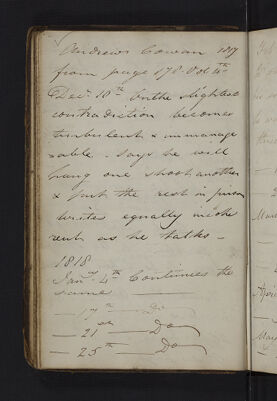 Andrews Cowan 1817
from page 178 Vol 4th
Decr. 10th On the slightest
contradiction becomes
turbulent & unmanage
=able. Says he will
hang one shoot another
& put the rest in prison
Writes equally incohe
rent as he talks —
1818
Jany. 4th Continues the
same
— 17th — Do
— 21st — Do
— 25th — Do